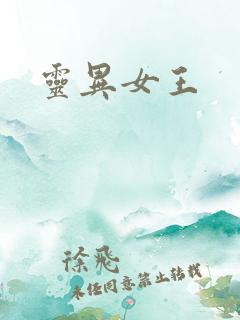 靈異女王
徐飛
未經同意禁止轉載